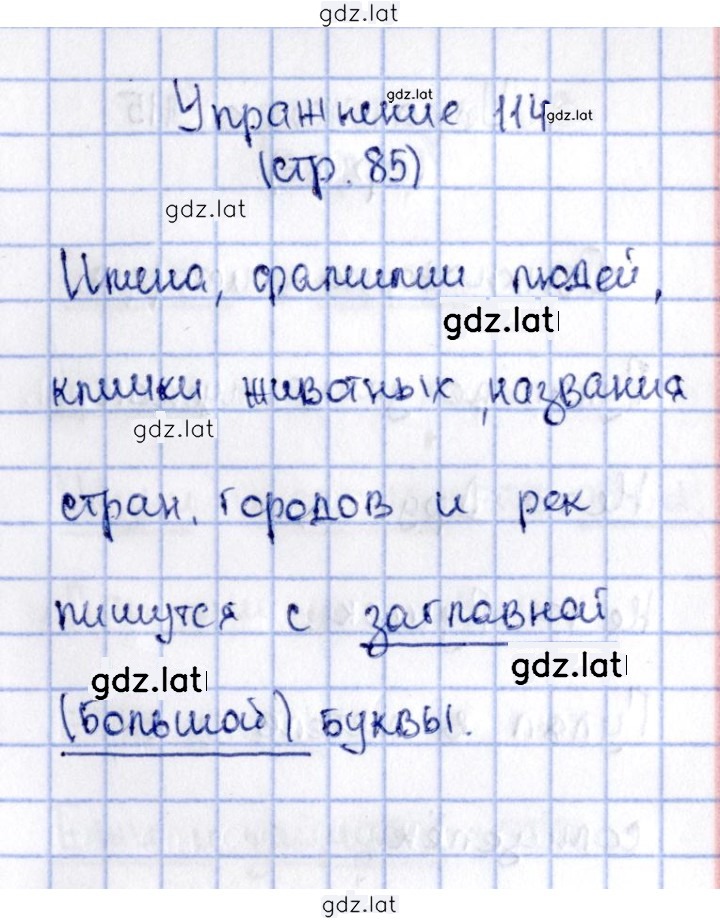 gdz.lat
gdz.lat
Упражнение 114 gdz.lat
(стр. 85)
gdz.lat
Имена, фамилии людей,
gdz.lat
клички животных, названия
gdz.lat
стран, городов и рек
пишутся с заглавной
gdz.lat gdz.lat
(большой) буквы.
gdz.lat